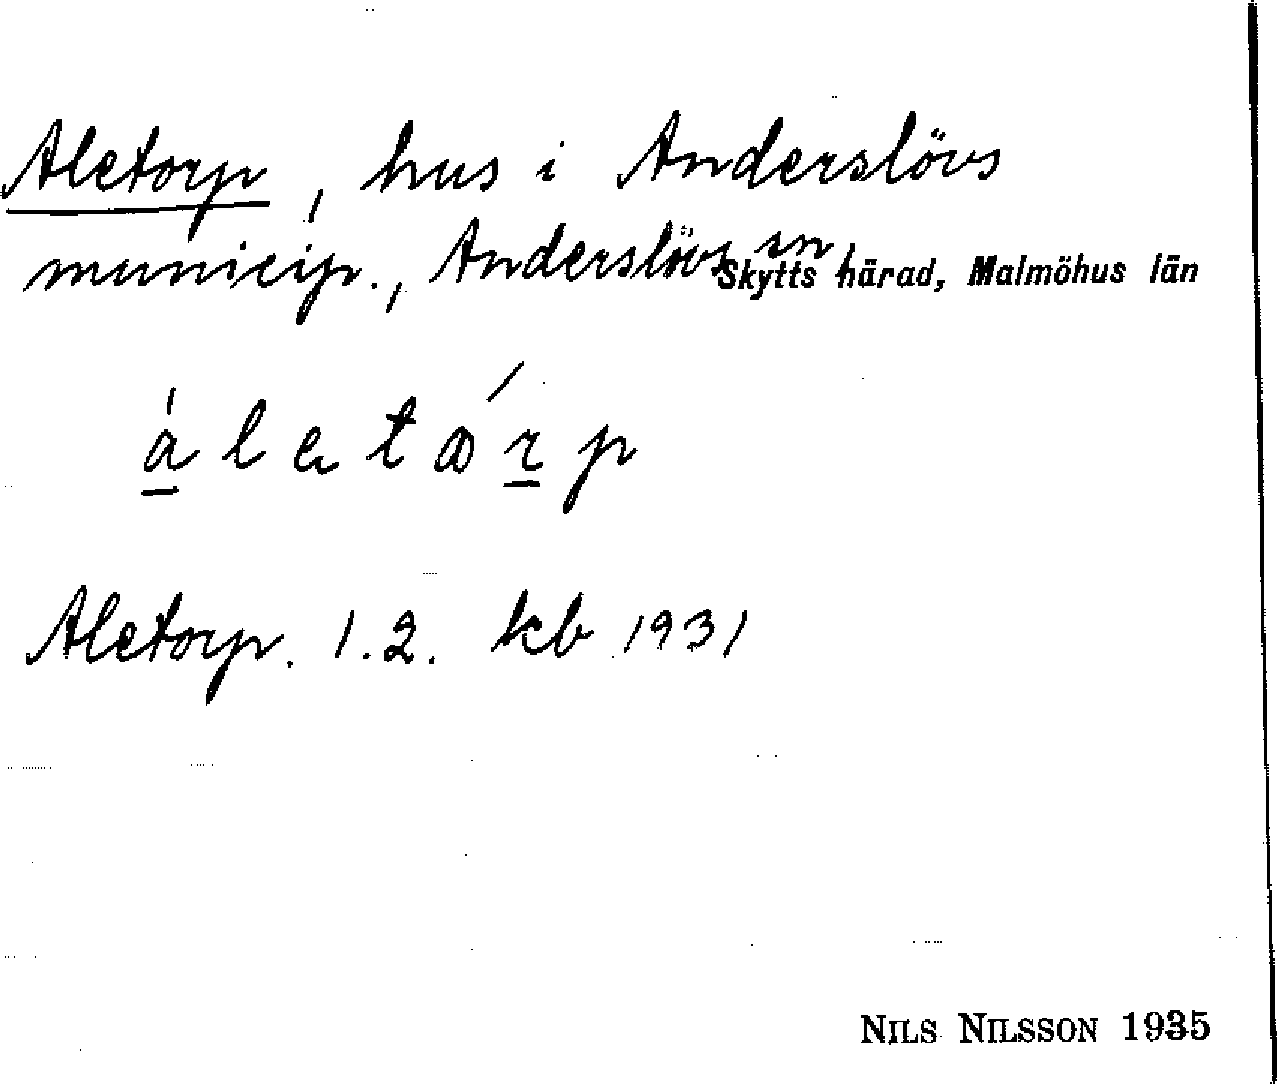 Aletorp, hus i Anderslövs
municip., Anderslövs sn, Skytts härad, Malmöhus län
Aletorp. 1.2. kb 1931
NILS NILSSON 1935